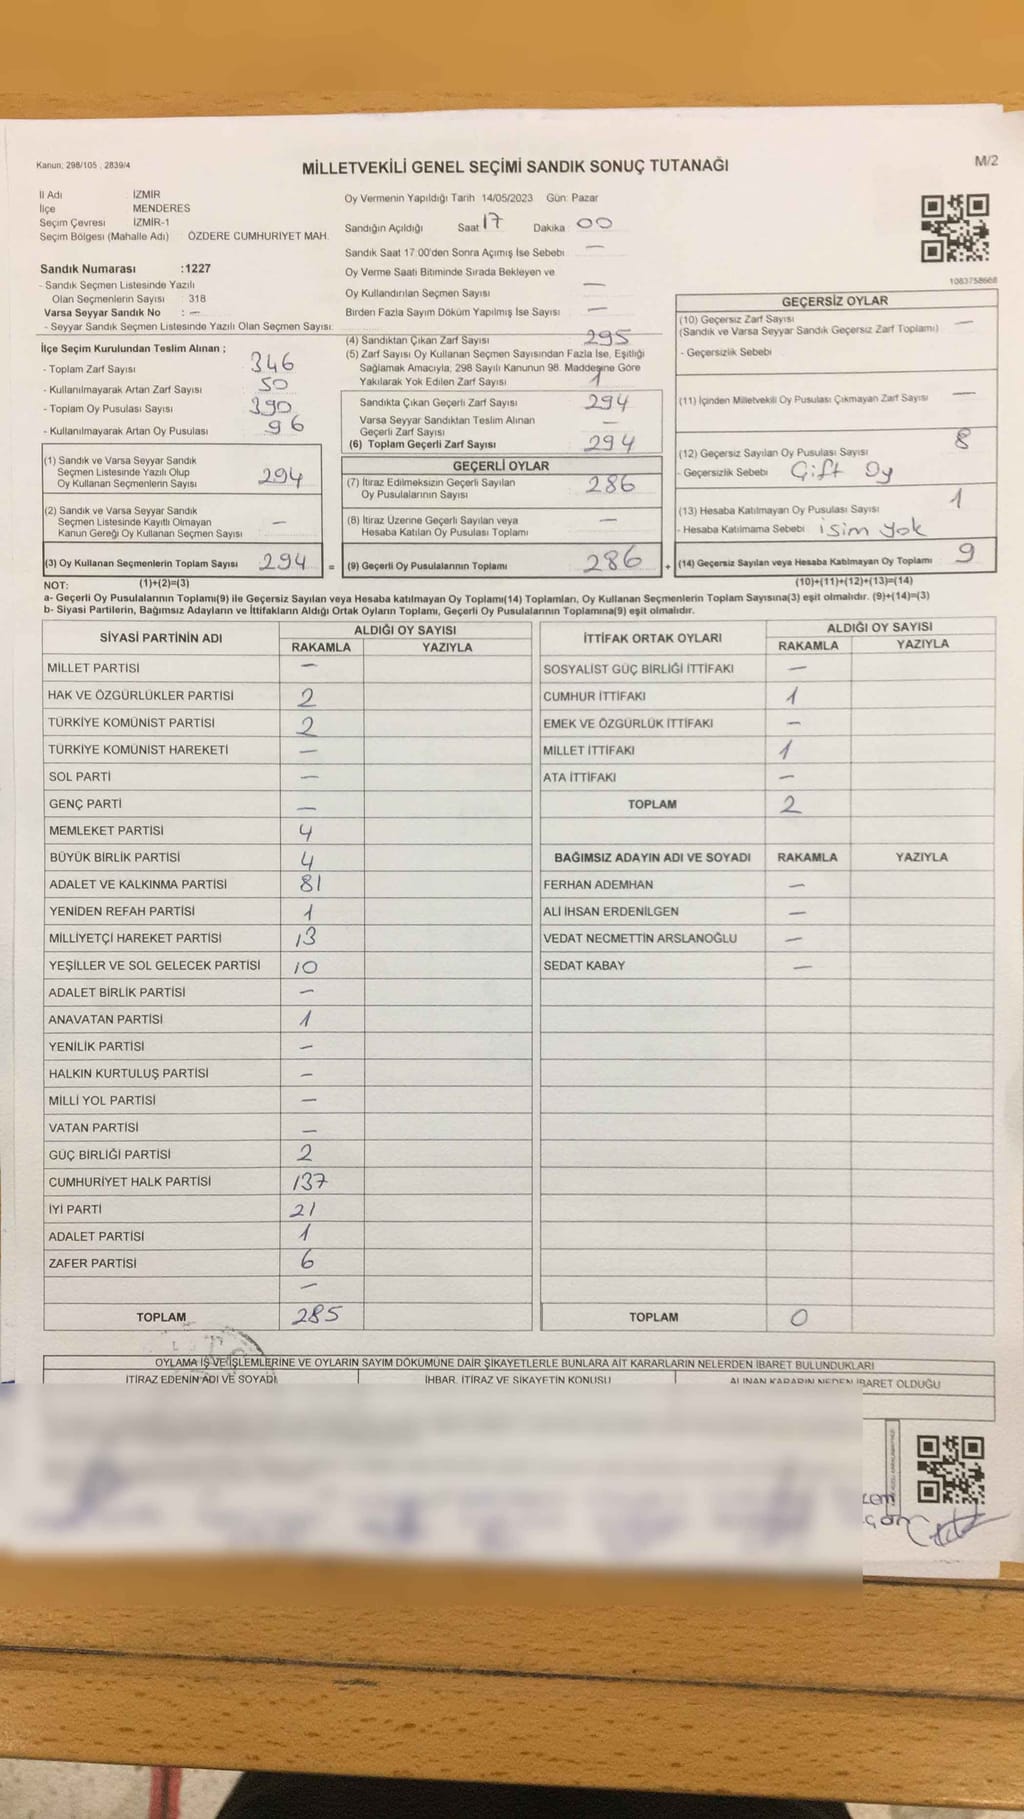 Kanun; 298/105 , 2839/4
MİLLETVEKİLİ GENEL SEÇİMİ SANDIK SONUÇ TUTANAĞI
M/2
İl Adı İZMİR
İlçe MENDERES
Seçim Çevresi İZMİR-1
Seçim Bölgesi (Mahalle Adı) ÖZDERE CUMHURİYET MAH.
Sandık Numarası :1227
- Sandık Seçmen Listesinde Yazılı
Olan Seçmenlerin Sayısı : 318
Varsa Seyyar Sandık No : —
- Seyyar Sandık Seçmen Listesinde Yazılı Olan Seçmen Sayısı:
İlçe Seçim Kurulundan Teslim Alınan ;
- Toplam Zarf Sayısı 346
- Kullanılmayarak Artan Zarf Sayısı 50
- Toplam Oy Pusulası Sayısı 390
- Kullanılmayarak Artan Oy Pusulası 96
(1) Sandık ve Varsa Seyyar Sandık
Seçmen Listesinde Yazılı Olup
Oy Kullanan Seçmenlerin Sayısı 294
(2) Sandık ve Varsa Seyyar Sandık
Seçmen Listesinde Kayıtlı Olmayan
Kanun Gereği Oy Kullanan Seçmen Sayısı —
(3) Oy Kullanan Seçmenlerin Toplam Sayısı 294 =
Oy Vermenin Yapıldığı Tarih 14/05/2023 Gün: Pazar
Sandığın Açıldığı Saat 17 Dakika 00
Sandık Saat 17:00'den Sonra Açımış İse Sebebi —
Oy Verme Saati Bitiminde Sırada Bekleyen ve
Oy Kullandırılan Seçmen Sayısı —
Birden Fazla Sayım Döküm Yapılmış İse Sayısı —
(4) Sandıktan Çıkan Zarf Sayısı 295
(5) Zarf Sayısı Oy Kullanan Seçmen Sayısından Fazla İse, Eşitliği
Sağlamak Amacıyla; 298 Sayılı Kanunun 98. Maddesine Göre
Yakılarak Yok Edilen Zarf Sayısı 1
Sandıkta Çıkan Geçerli Zarf Sayısı 294
Varsa Seyyar Sandıktan Teslim Alınan
Geçerli Zarf Sayısı —
(6) Toplam Geçerli Zarf Sayısı 294
GEÇERLİ OYLAR
(7) İtiraz Edilmeksizin Geçerli Sayılan
Oy Pusulalarının Sayısı 286
(8) İtiraz Üzerine Geçerli Sayılan veya
Hesaba Katılan Oy Pusulası Toplamı —
(9) Geçerli Oy Pusulalarının Toplamı 286 +
1083758668
GEÇERSİZ OYLAR
(10) Geçersiz Zarf Sayısı —
(Sandık ve Varsa Seyyar Sandık Geçersiz Zarf Toplamı)
- Geçersizlik Sebebi
(11) İçinden Milletvekili Oy Pusulası Çıkmayan Zarf Sayısı —
(12) Geçersiz Sayılan Oy Pusulası Sayısı 8
- Geçersizlik Sebebi Çift Oy
(13) Hesaba Katılmayan Oy Pusulası Sayısı 1
- Hesaba Katılmama Sebebi isim yok
(14) Geçersiz Sayılan veya Hesaba Katılmayan Oy Toplamı 9
NOT: (1)+(2)=(3) (10)+(11)+(12)+(13)=(14)
a- Geçerli Oy Pusulasının Toplamı(9) ile Geçersiz Sayılan veya Hesaba katılmayan Oy Toplamı(14) Toplamları, Oy Kullanan Seçmenlerin Toplam Sayısına(3) eşit olmalıdır. (9)+(14)=(3)
b- Siyasi Partilerin, Bağımsız Adayların ve İttifakların Aldığı Ortak Oyların Toplamı, Geçerli Oy Pusulalarının Toplamına(9) eşit olmalıdır.
SİYASİ PARTİNİN ADI ALDIĞI OY SAYISI
RAKAMLA YAZIYLA
MİLLET PARTİSİ —
HAK VE ÖZGÜRLÜKLER PARTİSİ 2
TÜRKİYE KOMÜNİST PARTİSİ 2
TÜRKİYE KOMÜNİST HAREKETİ —
SOL PARTİ —
GENÇ PARTİ —
MEMLEKET PARTİSİ 4
BÜYÜK BİRLİK PARTİSİ 4
ADALET VE KALKINMA PARTİSİ 81
YENİDEN REFAH PARTİSİ 1
MİLLİYETÇİ HAREKET PARTİSİ 13
YEŞİLLER VE SOL GELECEK PARTİSİ 10
ADALET BİRLİK PARTİSİ —
ANAVATAN PARTİSİ 1
YENİLİK PARTİSİ —
HALKIN KURTULUŞ PARTİSİ —
MİLLİ YOL PARTİSİ —
VATAN PARTİSİ —
GÜÇ BİRLİĞİ PARTİSİ 2
CUMHURİYET HALK PARTİSİ 137
İYİ PARTİ 21
ADALET PARTİSİ 1
ZAFER PARTİSİ 6
—
TOPLAM 285
İTTİFAK ORTAK OYLARI ALDIĞI OY SAYISI
RAKAMLA YAZIYLA
SOSYALİST GÜÇ BİRLİĞİ İTTİFAKI —
CUMHUR İTTİFAKI 1
EMEK VE ÖZGÜRLÜK İTTİFAKI —
MİLLET İTTİFAKI 1
ATA İTTİFAKI —
TOPLAM 2
BAĞIMSIZ ADAYIN ADI VE SOYADI RAKAMLA YAZIYLA
FERHAN ADEMHAN —
ALİ İHSAN ERDENİLGEN —
VEDAT NECMETTİN ARSLANOĞLU —
SEDAT KABAY —
TOPLAM 0
OYLAMA İŞ VE İŞLEMLERİNE VE OYLARIN SAYIM DÖKÜMÜNE DAİR ŞİKAYETLERLE BUNLARA AİT KARARLARIN NELERDEN İBARET BULUNDUKLARI
İTİRAZ EDENİN ADI VE SOYADI İHBAR, İTİRAZ VE ŞİKAYETİN KONUSU ALINAN KARARIN NEDEN İBARET OLDUĞU